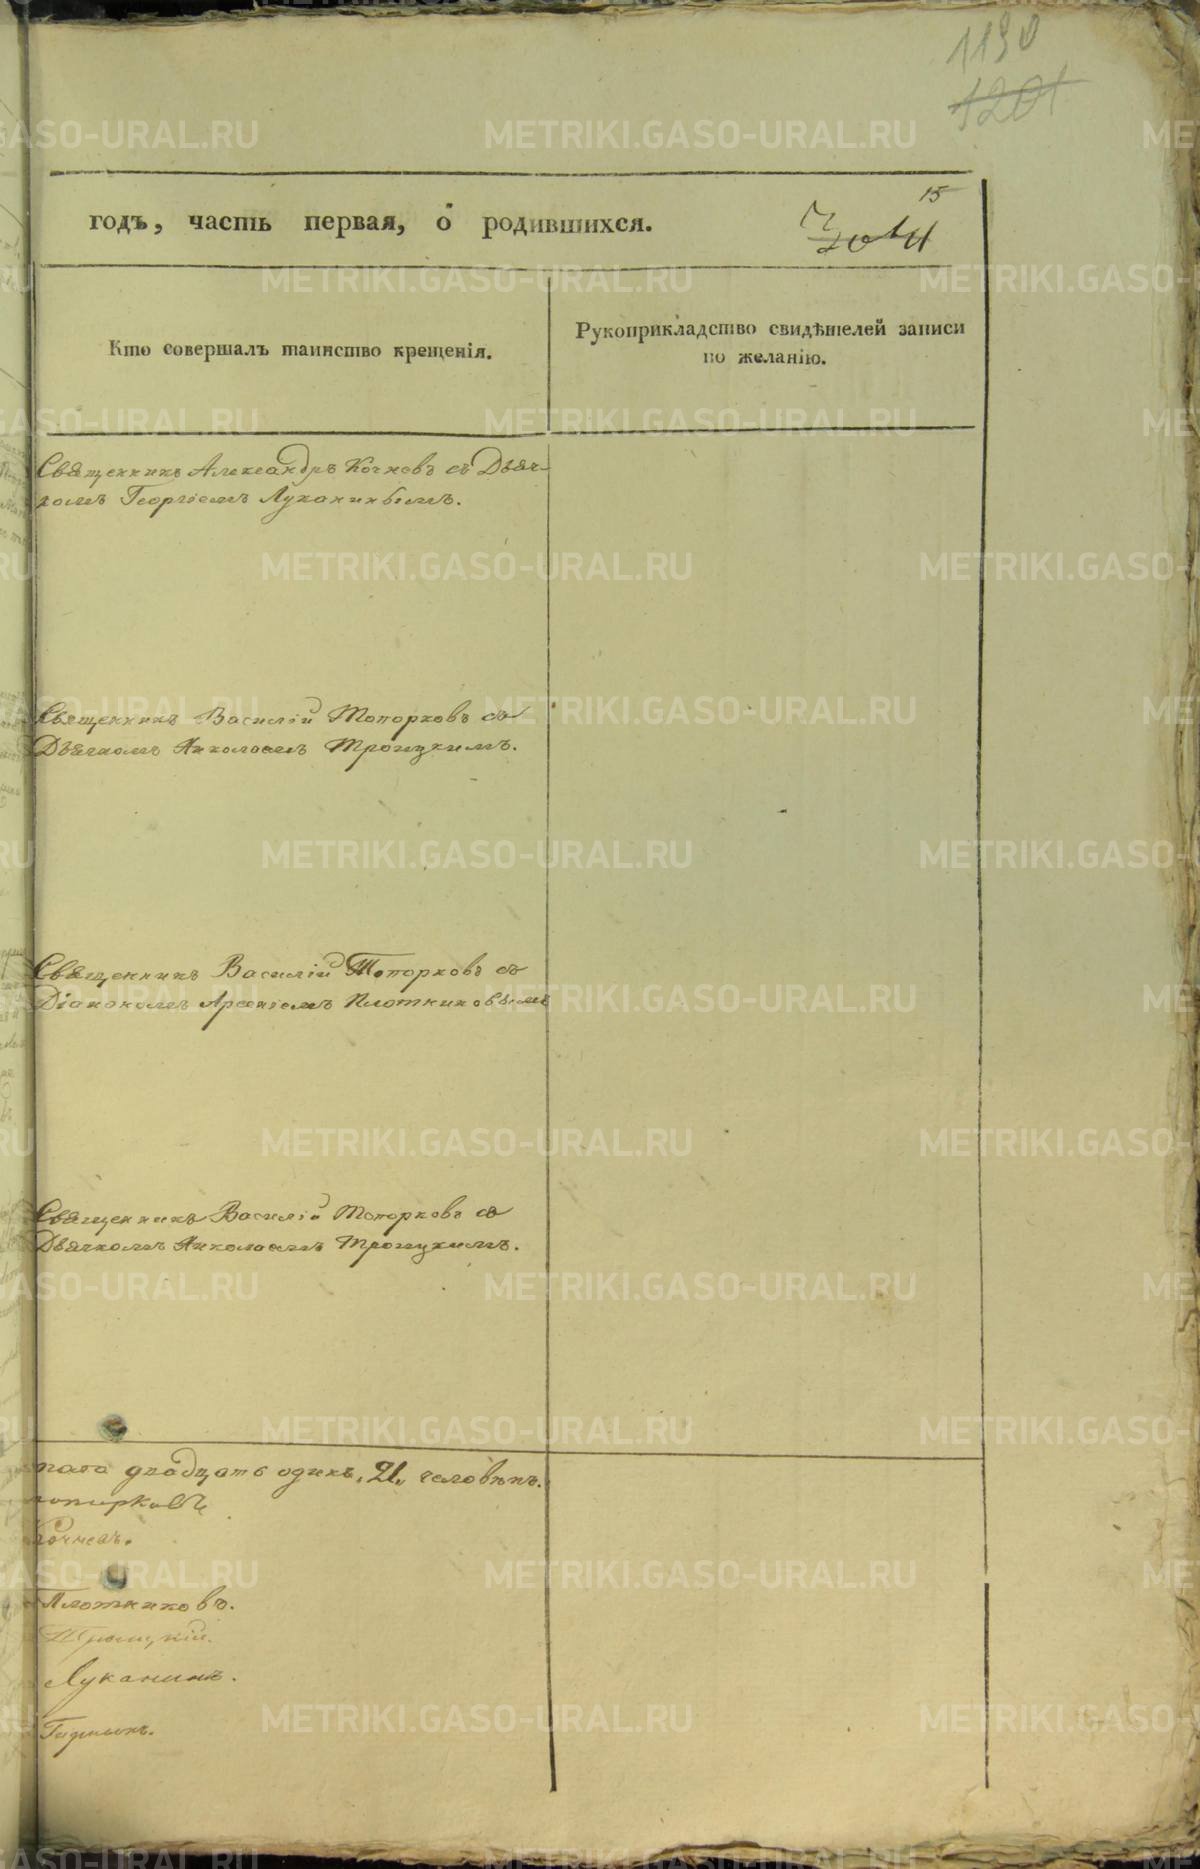 1190
1201
15
годъ, часть первая, о родившихся.
Кто совершалъ таинство крещенія.
Рукоприкладство свидѣтелей записи
по желанію.
Священникъ Александръ Кочневъ съ Дьяч-
комъ Георгіемъ Луканинымъ.
Священникъ Василій Топорковъ съ
Дьячкомъ Николаемъ Троицкимъ.
Священникъ Василій Топорковъ съ
Діакономъ Арсеніемъ Плотниковымъ
Священникъ Василій Топорковъ съ
Дьячкомъ Николаемъ Троицкимъ.
пола двадцать одинъ, 21, человѣкъ.
Топорковъ
Кочневъ.
Плотниковъ.
Троицкій.
Луканинъ.
METRIKI.GASO-URAL.RU